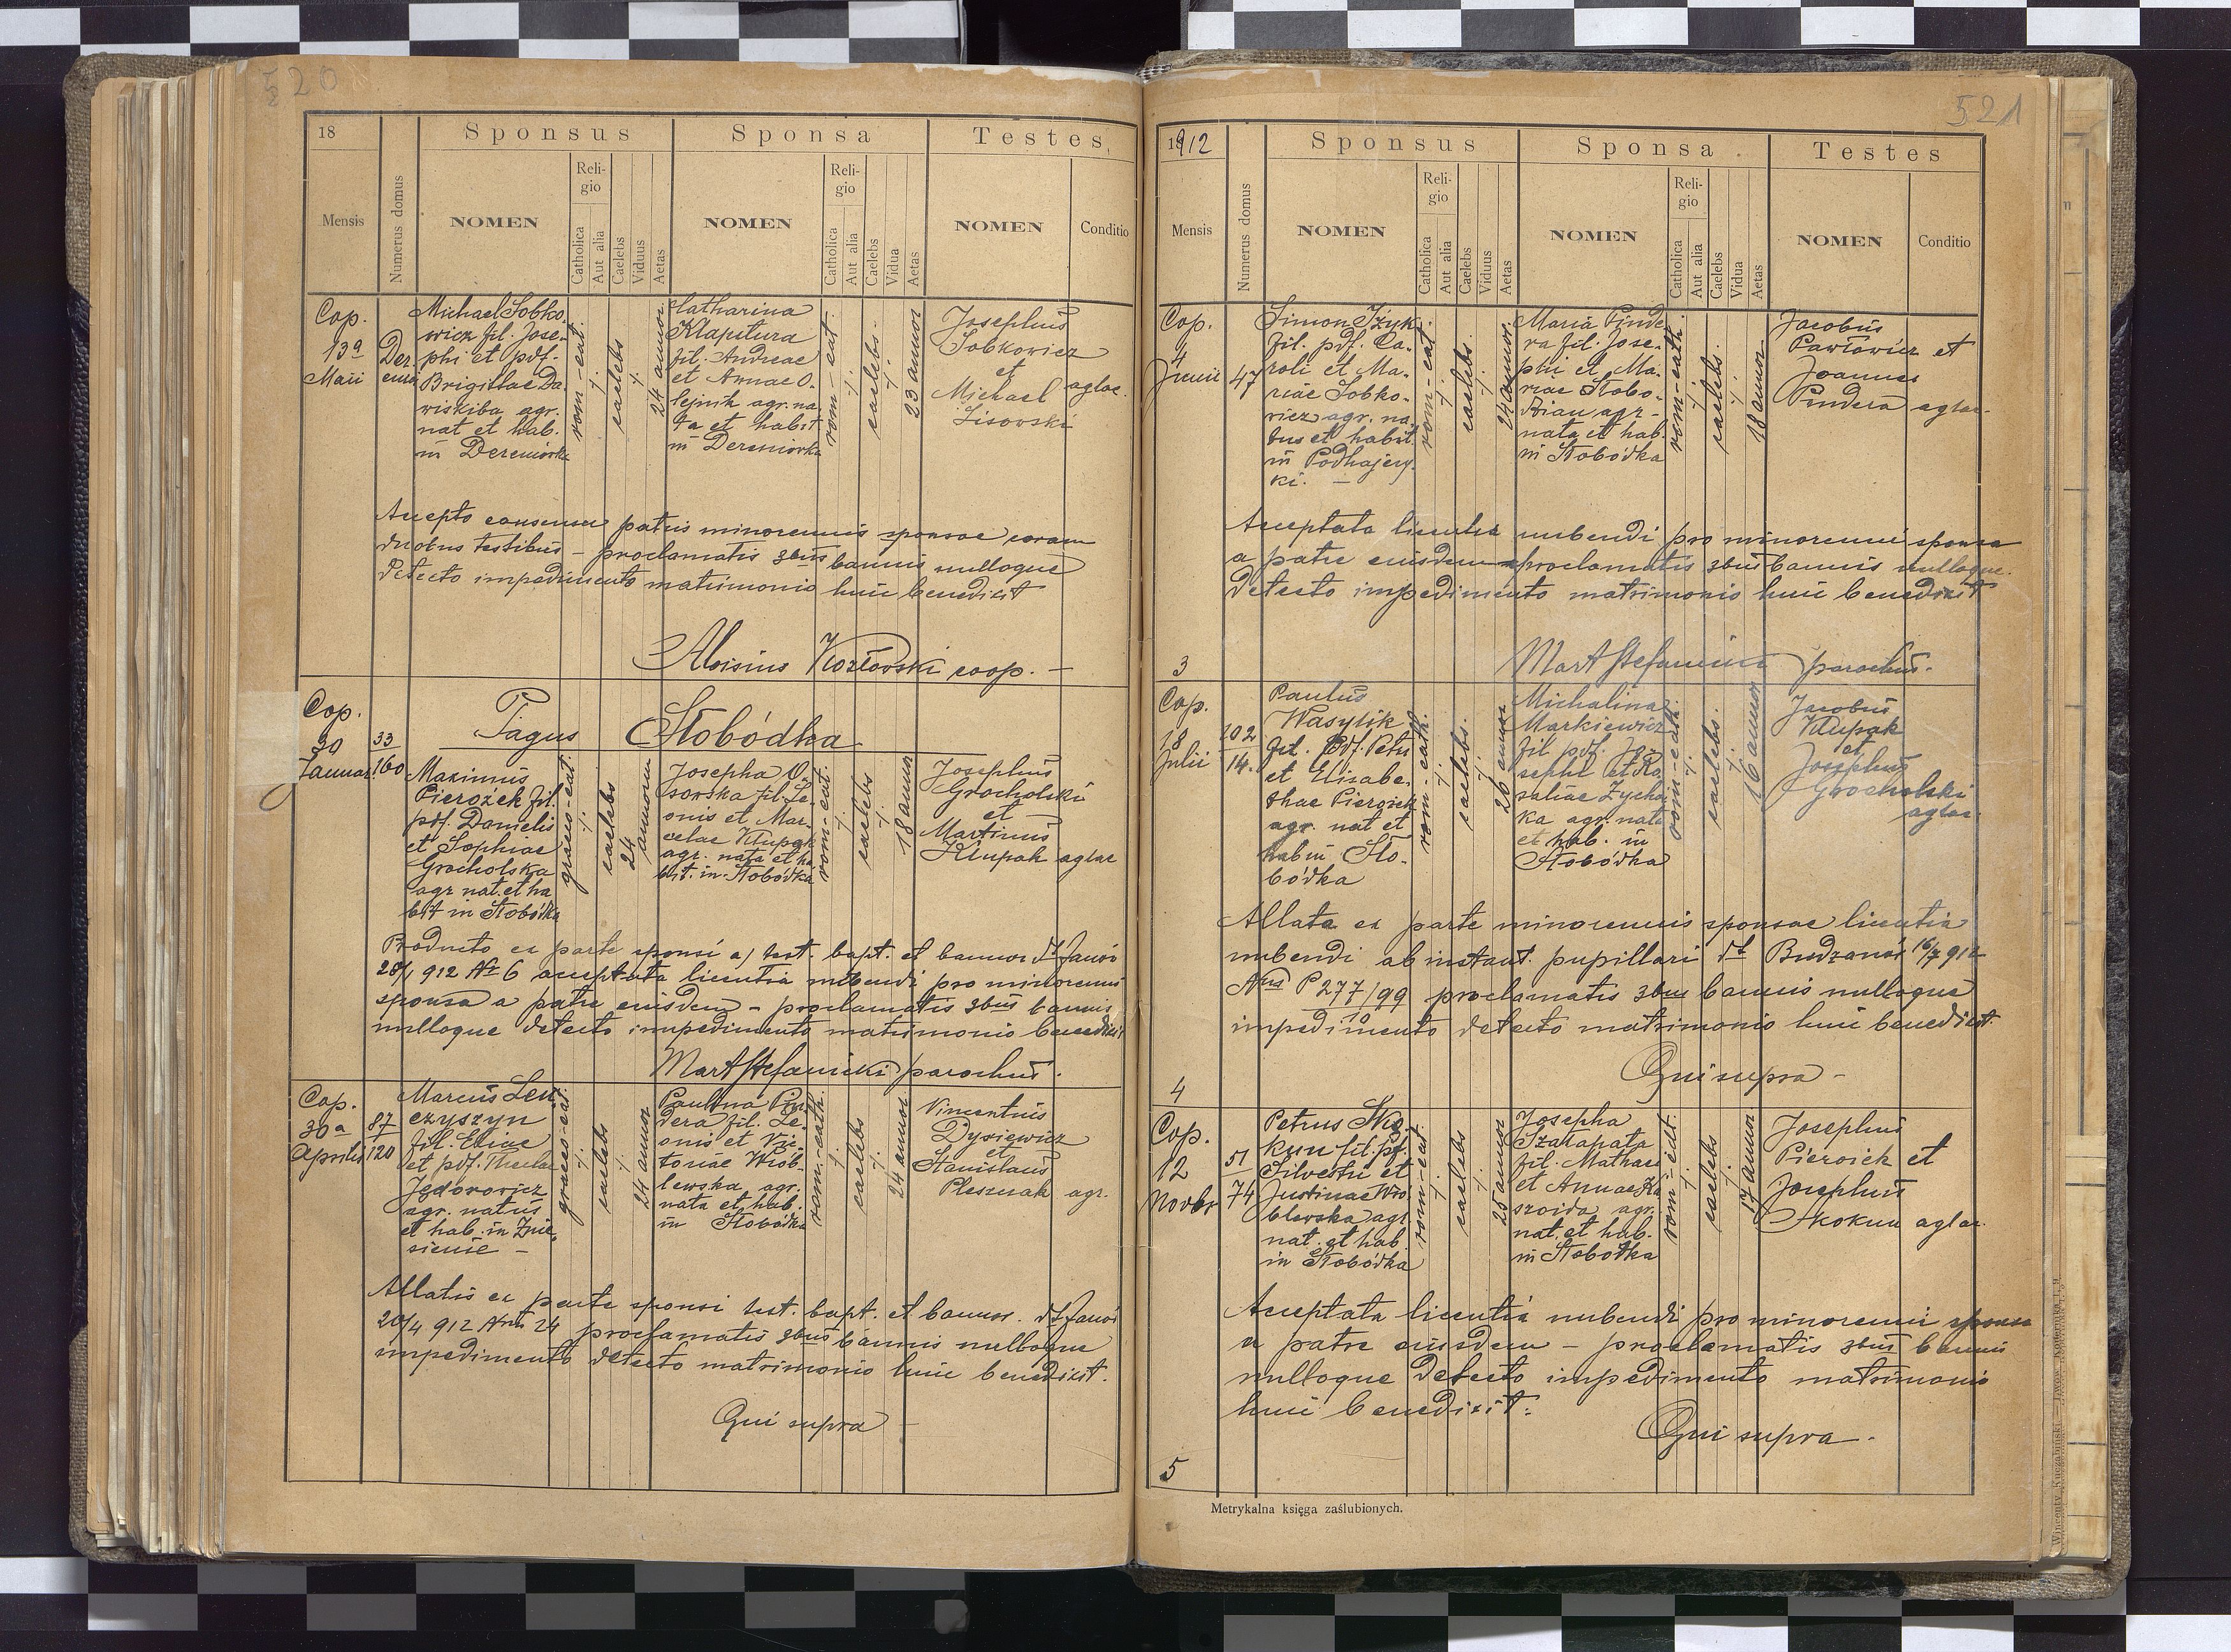 520
18
Sponsus
Sponsa
Testes
Mensis
Numerus domus
NOMEN
Religio
Catholica
Aut alia
Caelebs
Viduus
Aetas
NOMEN
Religio
Catholica
Aut alia
Caelebs
Vidua
Aetas
NOMEN
Conditio
Cop.
13a
Maii
Der
Michael Sobko-
wicz fil. Jose-
phi et pdf.
Brigittae Da-
wiskiba agr.
nat et hab.
in Dereniówka
rom-cat.
caelebs
24 annor
Catharina
Klapitura
fil. Andreae
et Annae O-
lejnik agr. na-
ta et habit
in Dereniówka
rom-cat.
caelebs.
23 annor
Josephus
Sobkowicz
et
Michael
Lisowski
aglae.
Accepto consensu patris minorennis sponsae coram
duobus testibus - proclamatis 3bus bannis nulloque
detecto impedimento matrimonio huic benedixit
Aloisius Kozłowski coop. -
Pagus Słobódka
Cop.
30
Januar
33
160
Maximus
Pierożek fil.
pdf. Danielis
et Sophiae
Grocholska
agr nat. et ha
bit in Słobódka
graeco-cat.
caelebs
24
annorum
Josepha O-
sowska fil. Le-
onis et Mar-
celae Kłupak
agr. nata et ha
bit. in Słobódka
rom-cat.
caelebs
18 annor
Josephus
Grocholski
et
Martinus
Kłupak aglae
Producto ex parte sponsi a) test. bapt. et bannor dt Janów
28/1 912 Nr 6 acceptata licentia nubendi pro minorenni
sponsa a patre eiusdem - proclamatis 3bus bannis
nulloque detecto impedimento matrimonio benedixit
Mart Stefanicki parochus.
Cop.
30a
Aprilis
87
120
Marcus Leu-
czyszyn
fil. Eliae
et pdf. Theclae
Jędorowicz
agr. natus
et hab. in Znie-
sienie -
graeco-cat.
caelebs
24 annor
Paulina Pin-
dera fil. Le-
onis et Vic-
toriae Wrób-
lewska agr.
nata et hab.
in Słobódka
rom-cath.
caelebs
24 annor
Vincentius
Dysiewicz
et
Stanislaus
Pleszczak agr.
Allatis ex parte sponsi test. bapt. et bannor. dt Janów
20/4 912 Nru 24 proclamatis 3bus bannis nulloque
impedimento detecto matrimonio huic benedixit.
Qui supra -
521
1912
Sponsus
Sponsa
Testes
Mensis
Numerus domus
NOMEN
Religio
Catholica
Aut alia
Caelebs
Viduus
Aetas
NOMEN
Religio
Catholica
Aut alia
Caelebs
Vidua
Aetas
NOMEN
Conditio
Cop.
4
Junii
47
Simon Iżyk
fil. pdf. Ca-
roli et Ma-
riae Sobko-
wicz agr. na-
tus et habit.
in Podhajczy-
ki. -
rom-cat.
caelebs.
24 annor.
Maria Pinde-
ra fil. Jose-
phi et Ma-
riae Słobo-
dzian agr-
nata et hab.
in Słobódka
rom-cath.
caelebs.
18 annor
Jacobus
Pawłowicz et
Joannes
Pindera aglae
Acceptata licentia nubendi pro minorenni sponsa
a patre eiusdem proclamatis 3bus bannis nulloque
detecto impedimento matrimonio huic benedixit
Mart Stefanicki parochus.
3
Cop.
18
Julii
202
14.
Paulus
Wasylik
fil. Pdf. Petri
et Elisabe-
thae Pierożek
agr. nat et
hab in Sło-
bódka
rom-cath.
caelebs.
26 annor
Michalina
Markiewicz
fil pdf. Jo-
sephi et Ro
saliae Zycho
ka agr. nata
et hab. in
Słobódka
rom-cath.
caelebs.
16 annor
Jacobus
Kłupak
et
Josephus
Grocholski
aglae
Allata ex parte minorennis sponsae licentia
nubendi ab instant. pupillari dt Budzanów 16/7 912
Nus P 277/99 proclamatis 3bus bannis nulloque
10
impedimento detecto matrimonio huic benedixit.
Qui supra -
4
Cop.
12
Novbr
51
74
Petrus Sko-
kun fil. pdf.
Silvestri et
Justinae Wró
blewska agr
nat. et hab
in Słobódka
rom-cat.
caelebs
25 annor
Josepha
Szałapata
fil. Mathaei
et Annae Ka
szoida agr.
nat. et hab.
in Słobódka
rom-cat.
caelebs
17 annor
Josephus
Pierożek et
Josephus
Skokun aglae
Acceptata licentia nubendi pro minorenni sponsa
a patre eiusdem - proclamatis 3bus bannis
nulloque detecto impedimento matrimonio
huic benedixit.
Qui supra.
5
Metrykalna księga zaślubionych.